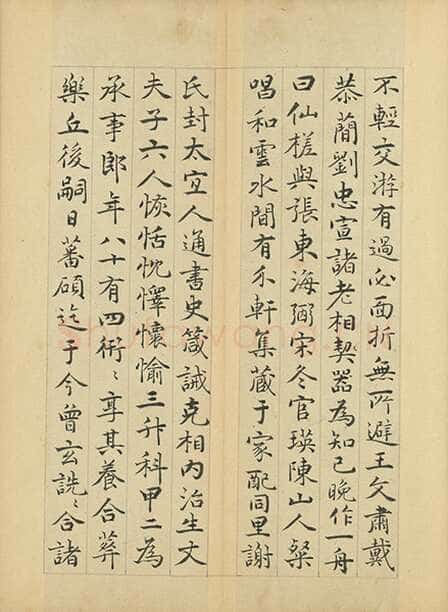 不輕交游有過必面折無所避王文肅戴
恭簡劉忠宣諸老相契器為知己晚作一舟
曰仙槎與張東海弼宋冬官瑛陳山人粲
唱和雲水間有禾軒集藏于家配同里謝
氏封太宜人通書史箴誡克相内治生丈
夫子六人恢恬忱懌懷愉三升科甲二為
承事郎年八十有四衎〻享其養合葬
樂丘後嗣日蕃碩迄于今曾玄詵〻合諸